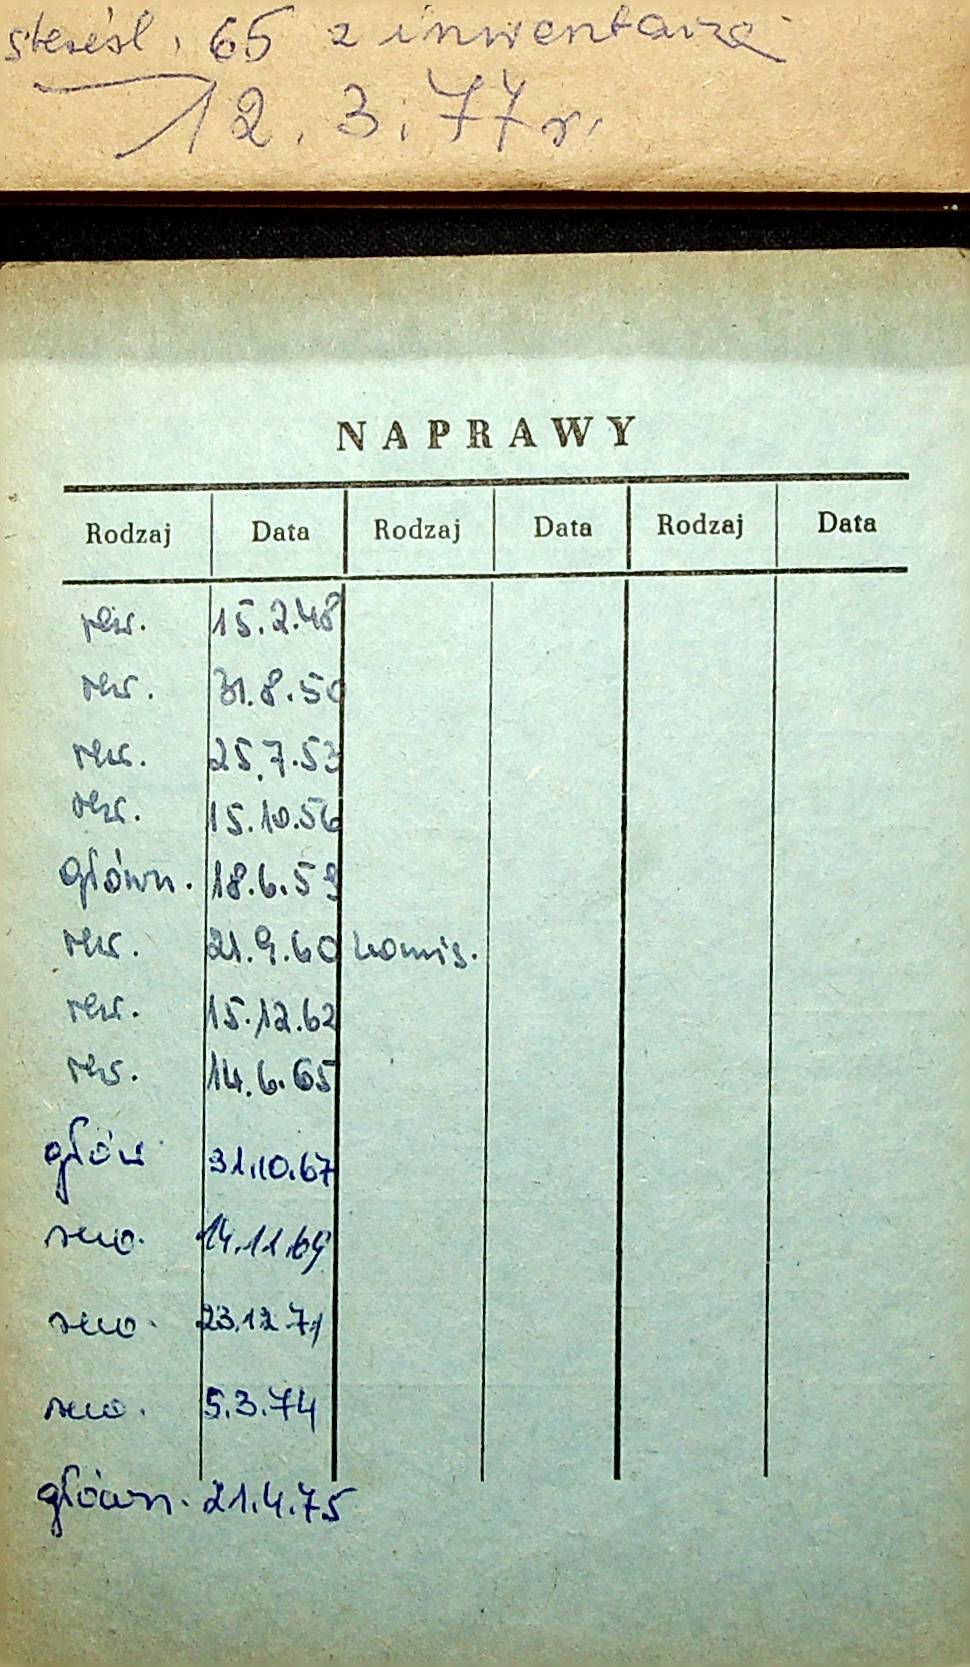 skreśl. 65 z inwentarza
12.3.77 r.
NAPRAWY
Rodzaj Data Rodzaj Data Rodzaj Data
rew. 15.2.48
rew. 31.8.50
rew. 25.7.53
rew. 15.10.56
główn. 18.6.59
rew. 21.9.60 komis.
rew. 15.12.62
rew. 14.6.65
głów 31.10.67
14.11.69
23.12.71
5.3.74
główn. 21.4.75